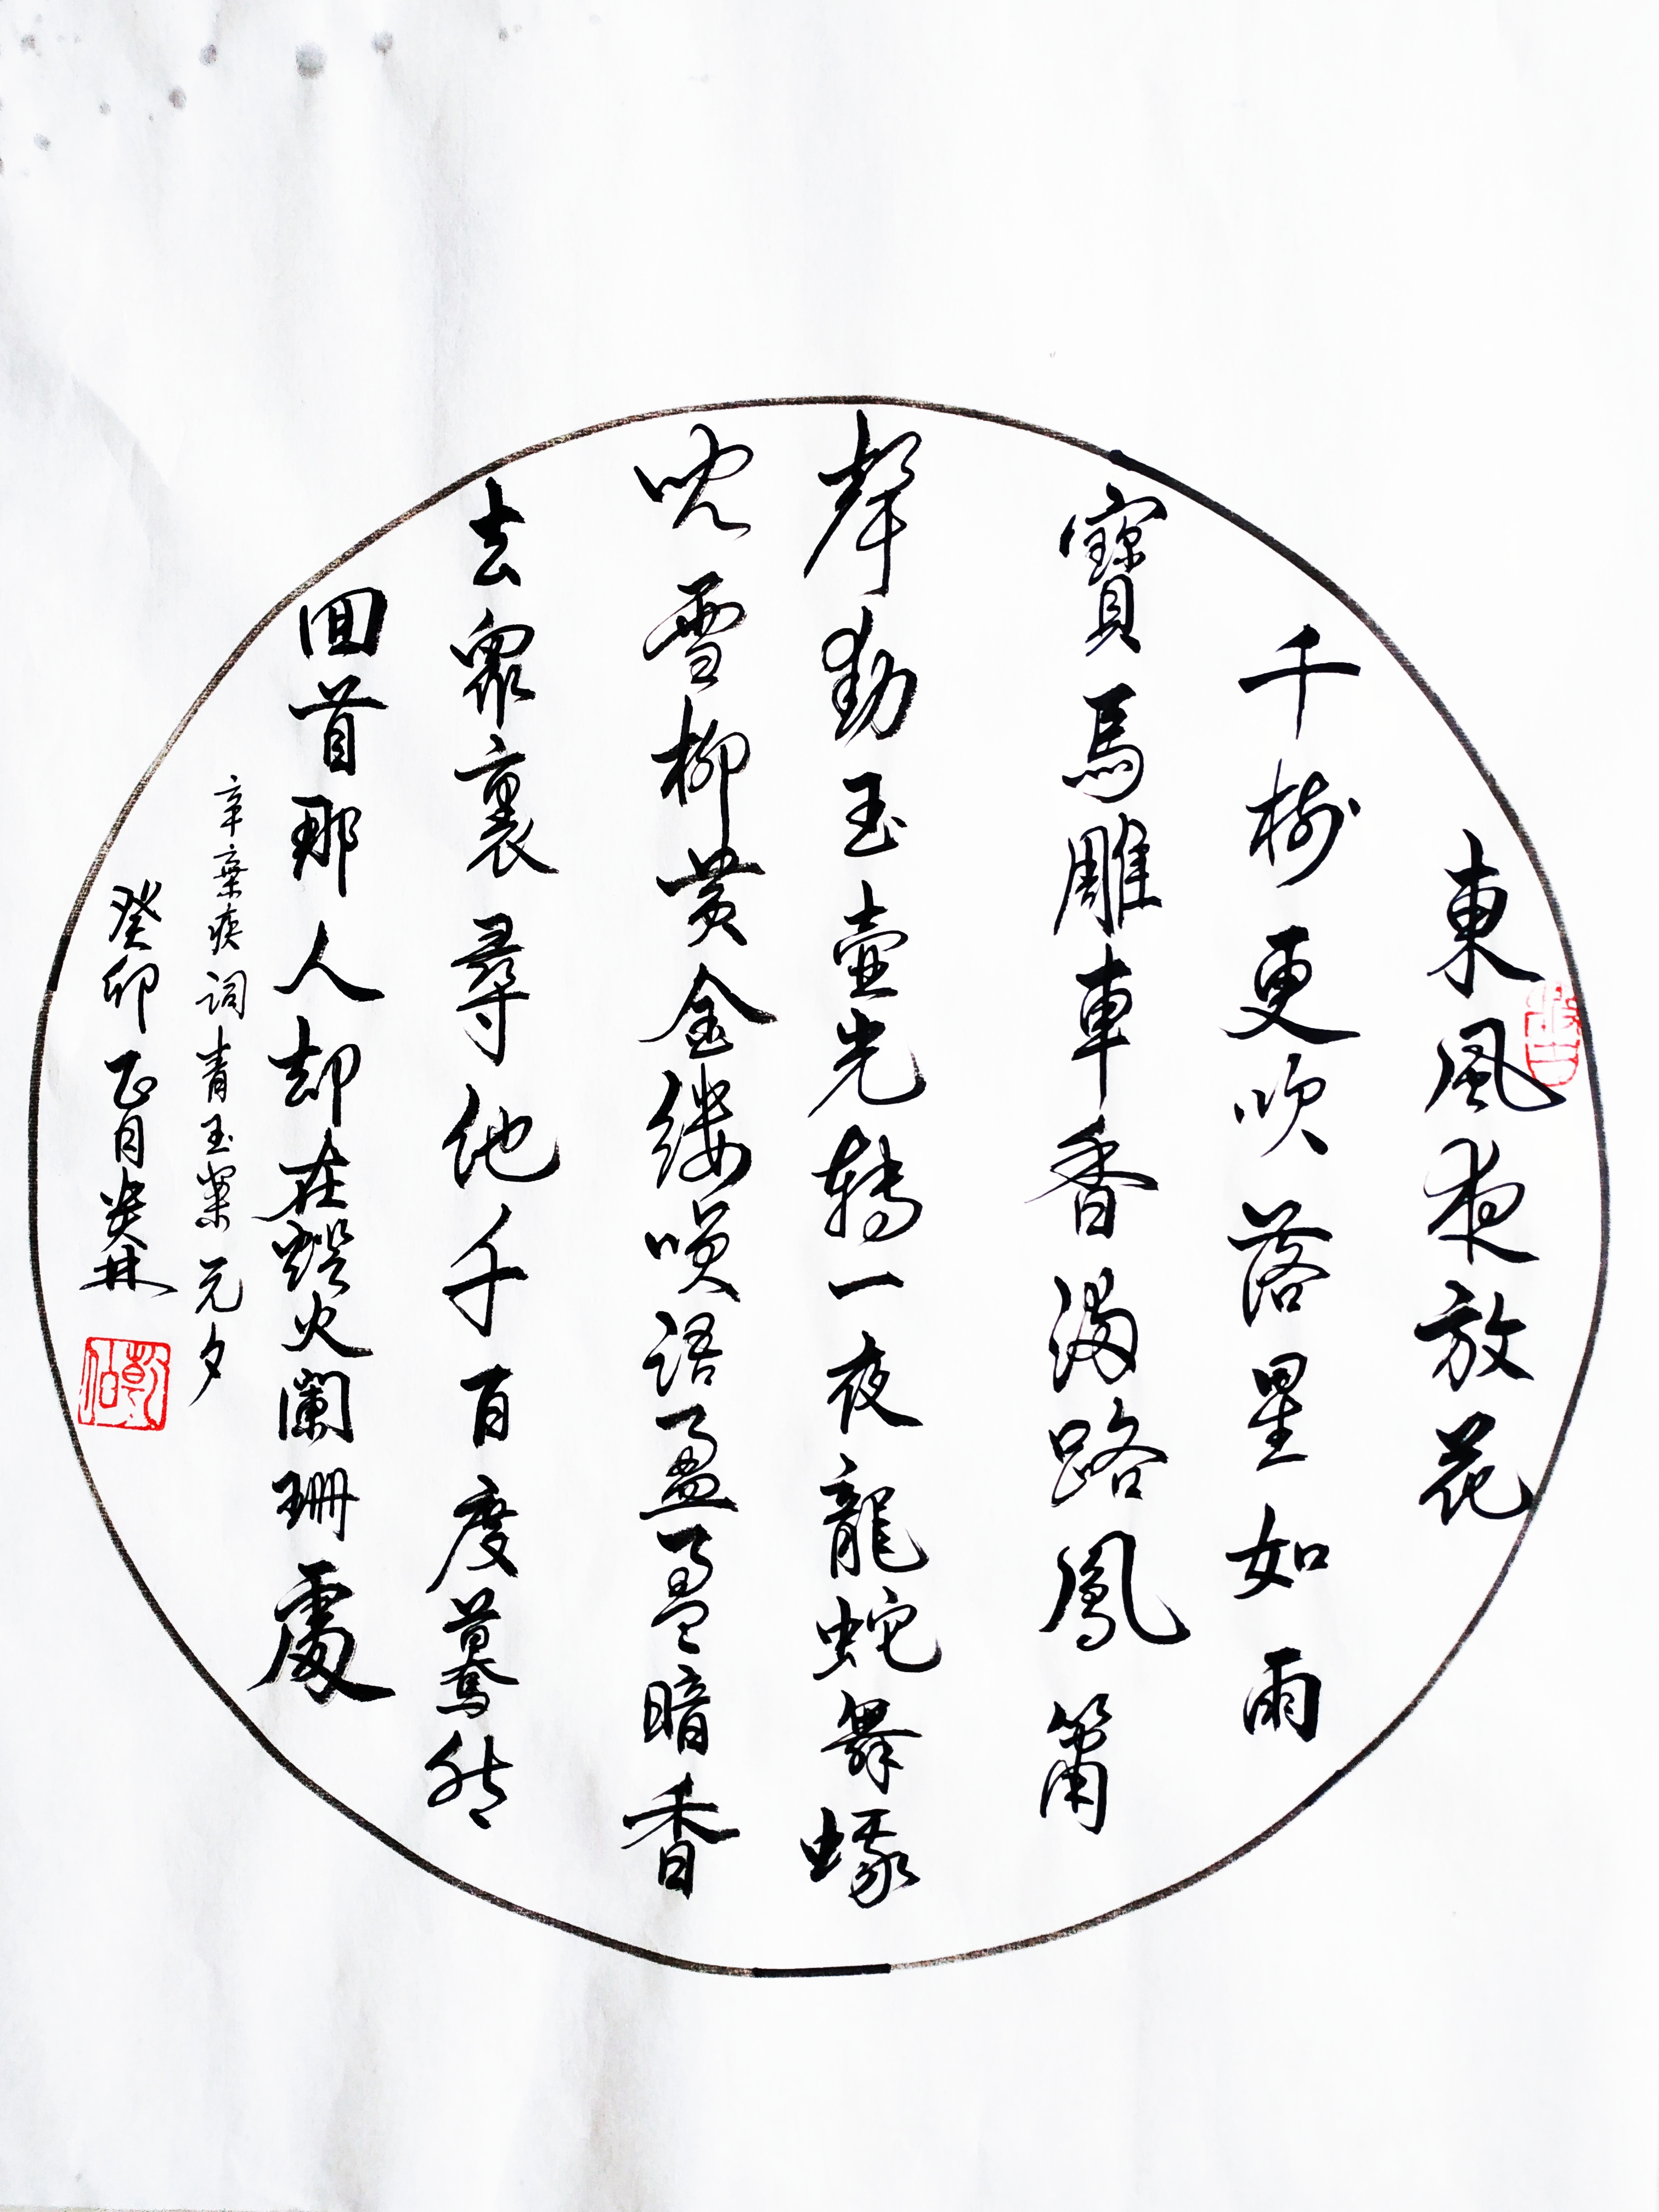 東風夜放花
千樹更吹落星如雨
寶馬雕車香滿路鳳簫
聲動玉壺光轉一夜龍蛇舞蛾
兒雪柳黄金缕笑語盈盈暗香
去衆裏尋他千百度驀然
回首那人却在燈火阑珊處
辛棄疾詞青玉案元夕
癸卯正月